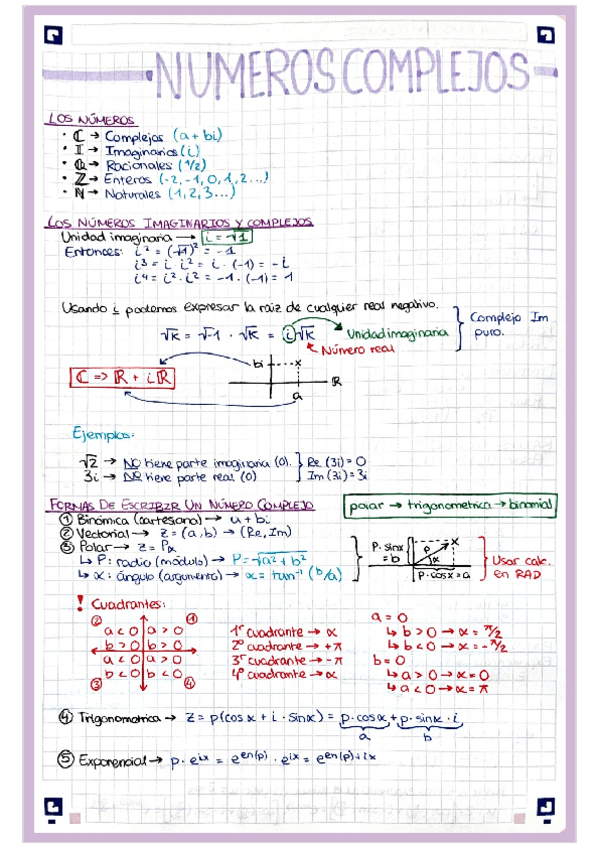 NUMEROS COMPLEJOS
LOS NÚMEROS
· ℂ → Complejos (a + bi)
· 𝕀 → Imaginarios (i)
· ℚ → Racionales (1/2)
· ℤ → Enteros (-2, -1, 0, 1, 2...)
· ℕ → Naturales (1, 2, 3...)
LOS NÚMEROS IMAGINARIOS Y COMPLEJOS
Unidad imaginaria → i = √1
Entonces: i² = (√1)² = -1
i³ = i · i² = i · (-1) = -i
i⁴ = i² · i² = -1 · (-1) = 1
Usando i podemos expresar la raiz de cualquier real negativo.
√K = √-1 · √K = i√K
Unidad imaginaria
Número real
Complejo Im
puro.
ℂ => ℝ + iℝ
bi
x
ℝ
a
Ejemplos:
√2 → NO tiene parte imaginaria (0). Re (3i) = 0
3i → NO tiene parte real (0) Im (3i) = 3i
FORMAS DE ESCRIBIR UN NÚMERO COMPLEJO
polar → trigonometrica → binomial
① Binómica (cartesiano) → a + bi
② Vectorial → z = (a, b) → (Re, Im)
③ Polar → z = Pα
↳ P: radio (módulo) → P = √a² + b²
↳ α: ángulo (argumento) → α = tan⁻¹ (b/a)
P · sinα
= b
ρ
α
x
P · cosα = a
Usar calc.
en RAD
! Cuadrantes:
② ①
a < 0 a > 0
b > 0 b > 0
a < 0 a > 0
b < 0 b < 0
③ ④
1º cuadrante → α
2º cuadrante → +π
3º cuadrante → -π
4º cuadrante → α
a = 0
↳ b > 0 → α = π/2
↳ b < 0 → α = -π/2
b = 0
↳ a > 0 → α = 0
↳ a < 0 → α = π
④ Trigonometrica → z = p(cos α + i · sinα) = p · cosα + p · sinα · i
a b
⑤ Exponencial → p · e^iα = e^en(p) · e^iα = e^en(p)+iα